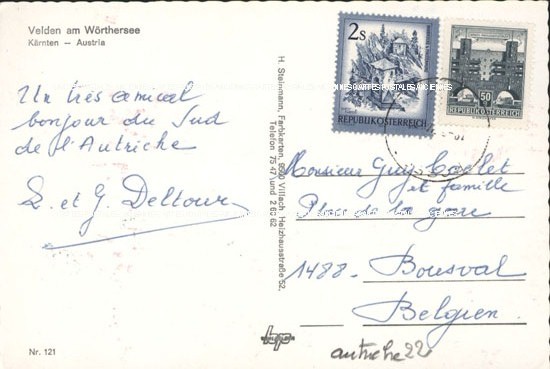 Velden am Wörthersee
Kärnten – Austria
Un très amical
bonjour du Sud
de l'Autriche
L. et G. Deltour
Nr. 121
H. Steinmann, Farbkarten, 9500 Villach, Heizhausstraße 52,
Telefon 75 47 und 2 66 62
2s
REPUBLIK ÖSTERREICH
50
REPUBLIK ÖSTERREICH
CARTES POSTALES ANCIENNES
Monsieur Guy
et famille
Place de la gare
1488 - Bousval
Belgien
autriche 22